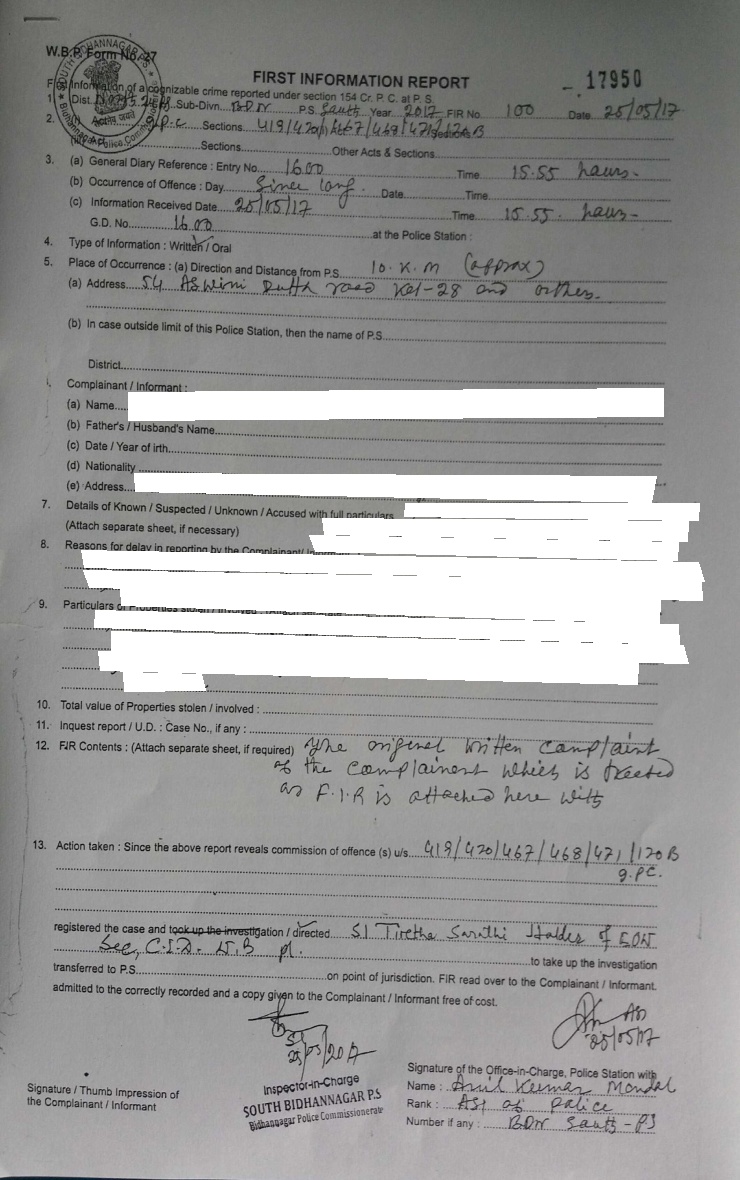 W.B.P. Form No. 27
FIRST INFORMATION REPORT
17950
First Information of a cognizable crime reported under section 154 Cr. P. C. at P. S.
1. Dist. Sub-Divn. BDN P.S. South Year 2017 FIR No 100 Date 25/05/17
2. I.P.C Sections 419/420/467/468/471/120B
Sections Other Acts & Sections
3. (a) General Diary Reference : Entry No. 1600 Time 15.55 hours-
(b) Occurrence of Offence : Day Since long. Date Time
(c) Information Received Date 25/05/17 Time 15.55. hours-
G.D. No. 1600 at the Police Station :
4. Type of Information : Written / Oral
5. Place of Occurrence : (a) Direction and Distance from P.S. 10.K.M (approx)
(a) Address 54 Aswini Dutta road Kol-28 and others.
(b) In case outside limit of this Police Station, then the name of P.S.
District
Complainant / Informant :
(a) Name
(b) Father's / Husband's Name
(c) Date / Year of irth
(d) Nationality
(e) Address
7. Details of Known / Suspected / Unknown / Accused with full particulars
(Attach separate sheet, if necessary)
8. Reasons for delay in reporting by the Complainant/
9. Particulars of Properties stolen / involved :
10. Total value of Properties stolen / involved :
11. Inquest report / U.D. : Case No., if any :
12. FIR Contents : (Attach separate sheet, if required) The original written complaint
of the complainent which is treated
as F.I.R is attached here with
13. Action taken : Since the above report reveals commission of offence (s) u/s. 419/420/467/468/471/120B
I.P.C.
registered the case and took up the investigation / directed SI Tirtha Sarathi Halder of EOW
Sec, C.I.D. W.B pl. to take up the investigation
transferred to P.S. on point of jurisdiction. FIR read over to the Complainant / Informant.
admitted to the correctly recorded and a copy given to the Complainant / Informant free of cost.
ASI
25/05/17
25/05/2017
Signature / Thumb Impression of
the Complainant / Informant
Inspector-in-Charge
SOUTH BIDHANNAGAR P.S
Bidhannagar Police Commissionerate
Signature of the Office-in-Charge, Police Station with
Name : Anil Kumar Mondal
Rank : ASI of police
Number if any : BDN South-PS